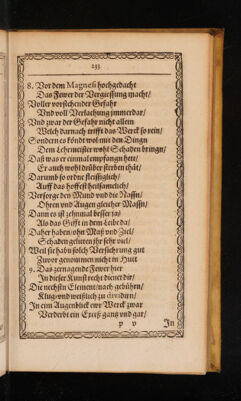 233
8. Vor dem Magnesi hochgedacht
Das Fewer der Vergiessung macht/
Voller vorstehender Gefahr
Vnd voll Verlachung immerdar/
Vnd zwar der Gefahr nicht allein
Welch darnach trifft das Werck so rein/
Sondern es köndt wol mit den Dingn
Dem Lehrmeister wohl Schaden bringn/
Daß was er einmal empfangn hett/
Er auch wohl deüber sterben thät/
Darumb so ordne fleissiglich/
Auff das hoffest heilsamelich/
Versorge den Mund vnd die Nassn/
Ohren vnd Augen gleicher Massn/
Dann es ist zehnmal besser ja/
Als das Gifft in dem Leibe da/
Daher haben ohn Maß vnd Ziel/
Schaden gelitten sehr viel/
Weil sie habn solch Versehrung gut
Zuvor genommen nicht in Hutt
9. Das zernagende Fewer hier
In dieser Kunst recht dienet dir/
Die nechstn Element/nach gebührn/
Klug-vnd weißlich zu dividirn/
In eim Augenblick ewr Werck zwar
Verderbt ein Exceß gantz vnd gar/
p v In